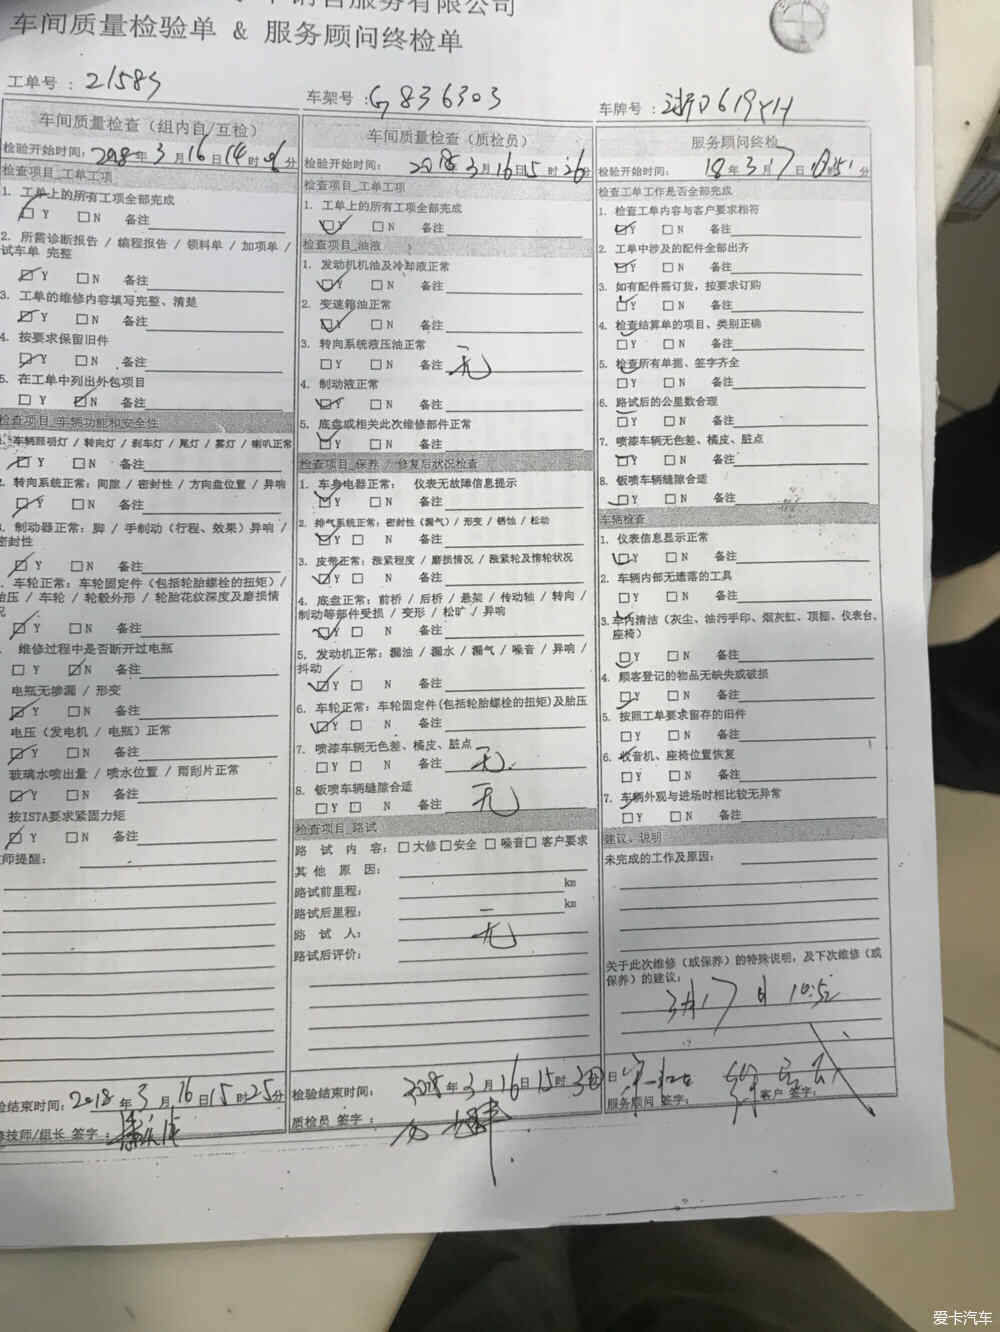 销售服务有限公司
车间质量检验单 & 服务顾问终检单
工单号：21589
车架号：G836303
车牌号：
车间质量检查（组内自/互检）
检验开始时间：2018年3月16日14时06分
检查项目_工单工项
1. 工单上的所有工项全部完成
Y N 备注
2. 所需诊断报告 / 编程报告 / 领料单 / 加项单 /
试车单 完整
Y N 备注
3. 工单的维修内容填写完整、清楚
Y N 备注
4. 按要求保留旧件
Y N 备注
5. 在工单中列出外包项目
Y N 备注
检查项目_车辆功能和安全性
车辆照明灯 / 转向灯 / 刹车灯 / 尾灯 / 雾灯 / 喇叭正常
Y N 备注
转向系统正常：间隙 / 密封性 / 方向盘位置 / 异响
Y N 备注
制动器正常：脚 / 手制动（行程、效果）异响 /
密封性
Y N 备注
车轮正常：车轮固定件（包括轮胎螺栓的扭矩） /
胎压 / 车轮 / 轮毂外形 / 轮胎花纹深度及磨损情
况
Y N 备注
维修过程中是否断开过电瓶
Y N 备注
电瓶无渗漏 / 形变
Y N 备注
电压（发电机 / 电瓶）正常
Y N 备注
玻璃水喷出量 / 喷水位置 / 雨刮片正常
Y N 备注
按ISTA要求紧固力矩
Y N 备注
技师提醒：
检验结束时间：2018年3月16日15时25分
修技师/组长 签字：
车间质量检查（质检员）
检验开始时间：2018年3月16日15时26分
检查项目_工单工项
1. 工单上的所有工项全部完成
Y N 备注
检查项目_油液
1. 发动机机油及冷却液正常
Y N 备注
2. 变速箱油正常
Y N 备注
3. 转向系统液压油正常
Y N 备注 无
4. 制动液正常
Y N 备注
5. 底盘或相关此次维修部件正常
Y N 备注
检查项目_保养 / 修复后状况检查
1. 车身电器正常： 仪表无故障信息提示
Y N 备注
2. 排气系统正常：密封性（漏气）/ 形变 / 锈蚀 / 松动
Y N 备注
3. 皮带正常：涨紧程度 / 磨损情况 / 涨紧轮及惰轮状况
Y N 备注
4. 底盘正常：前桥 / 后桥 / 悬架 / 传动轴 / 转向 /
制动等部件受损 / 变形 / 松旷 / 异响
Y N 备注
5. 发动机正常：漏油 / 漏水 / 漏气 / 噪音 / 异响 /
抖动
Y N 备注
6. 车轮正常：车轮固定件(包括轮胎螺栓的扭矩)及胎压
Y N 备注
7. 喷漆车辆无色差、橘皮、脏点
Y N 备注 无
8. 钣喷车辆缝隙合适
Y N 备注 无
检查项目_路试
路 试 内 容： 大修 安全 噪音 客户要求
其 他 原 因：
路试前里程： km
路试后里程： km
路 试 人： 无
路试后评价：
检验结束时间： 2018年3月16日15时30
质检员 签字：
服务顾问终检
检验开始时间： 18年3月17日 分
检查工单工作是否全部完成
1. 检查工单内容与客户要求相符
Y N 备注
2. 工单中涉及的配件全部出齐
Y N 备注
3. 如有配件需订货，按要求订购
Y N 备注
4. 检查结算单的项目、类别正确
Y N 备注
5. 检查所有单据、签字齐全
Y N 备注
6. 路试后的公里数合理
Y N 备注
7. 喷漆车辆无色差、橘皮、脏点
Y N 备注
8. 钣喷车辆缝隙合适
Y N 备注
车辆检查
1. 仪表信息显示正常
Y N 备注
2. 车辆内部无遗落的工具
Y N 备注
3. 车内清洁（灰尘、油污手印、烟灰缸、顶棚、仪表台、
座椅）
Y N 备注
4. 顾客登记的物品无缺失或破损
Y N 备注
5. 按照工单要求留存的旧件
Y N 备注
6. 收音机、座椅位置恢复
Y N 备注
7. 车辆外观与进场时相比较无异常
Y N 备注
建议、说明
未完成的工作及原因：
关于此次维修（或保养）的特殊说明，及下次维修（或
保养）的建议：
3月17日 10:52
服务顾问 签字：
客户 签字：
爱卡汽车